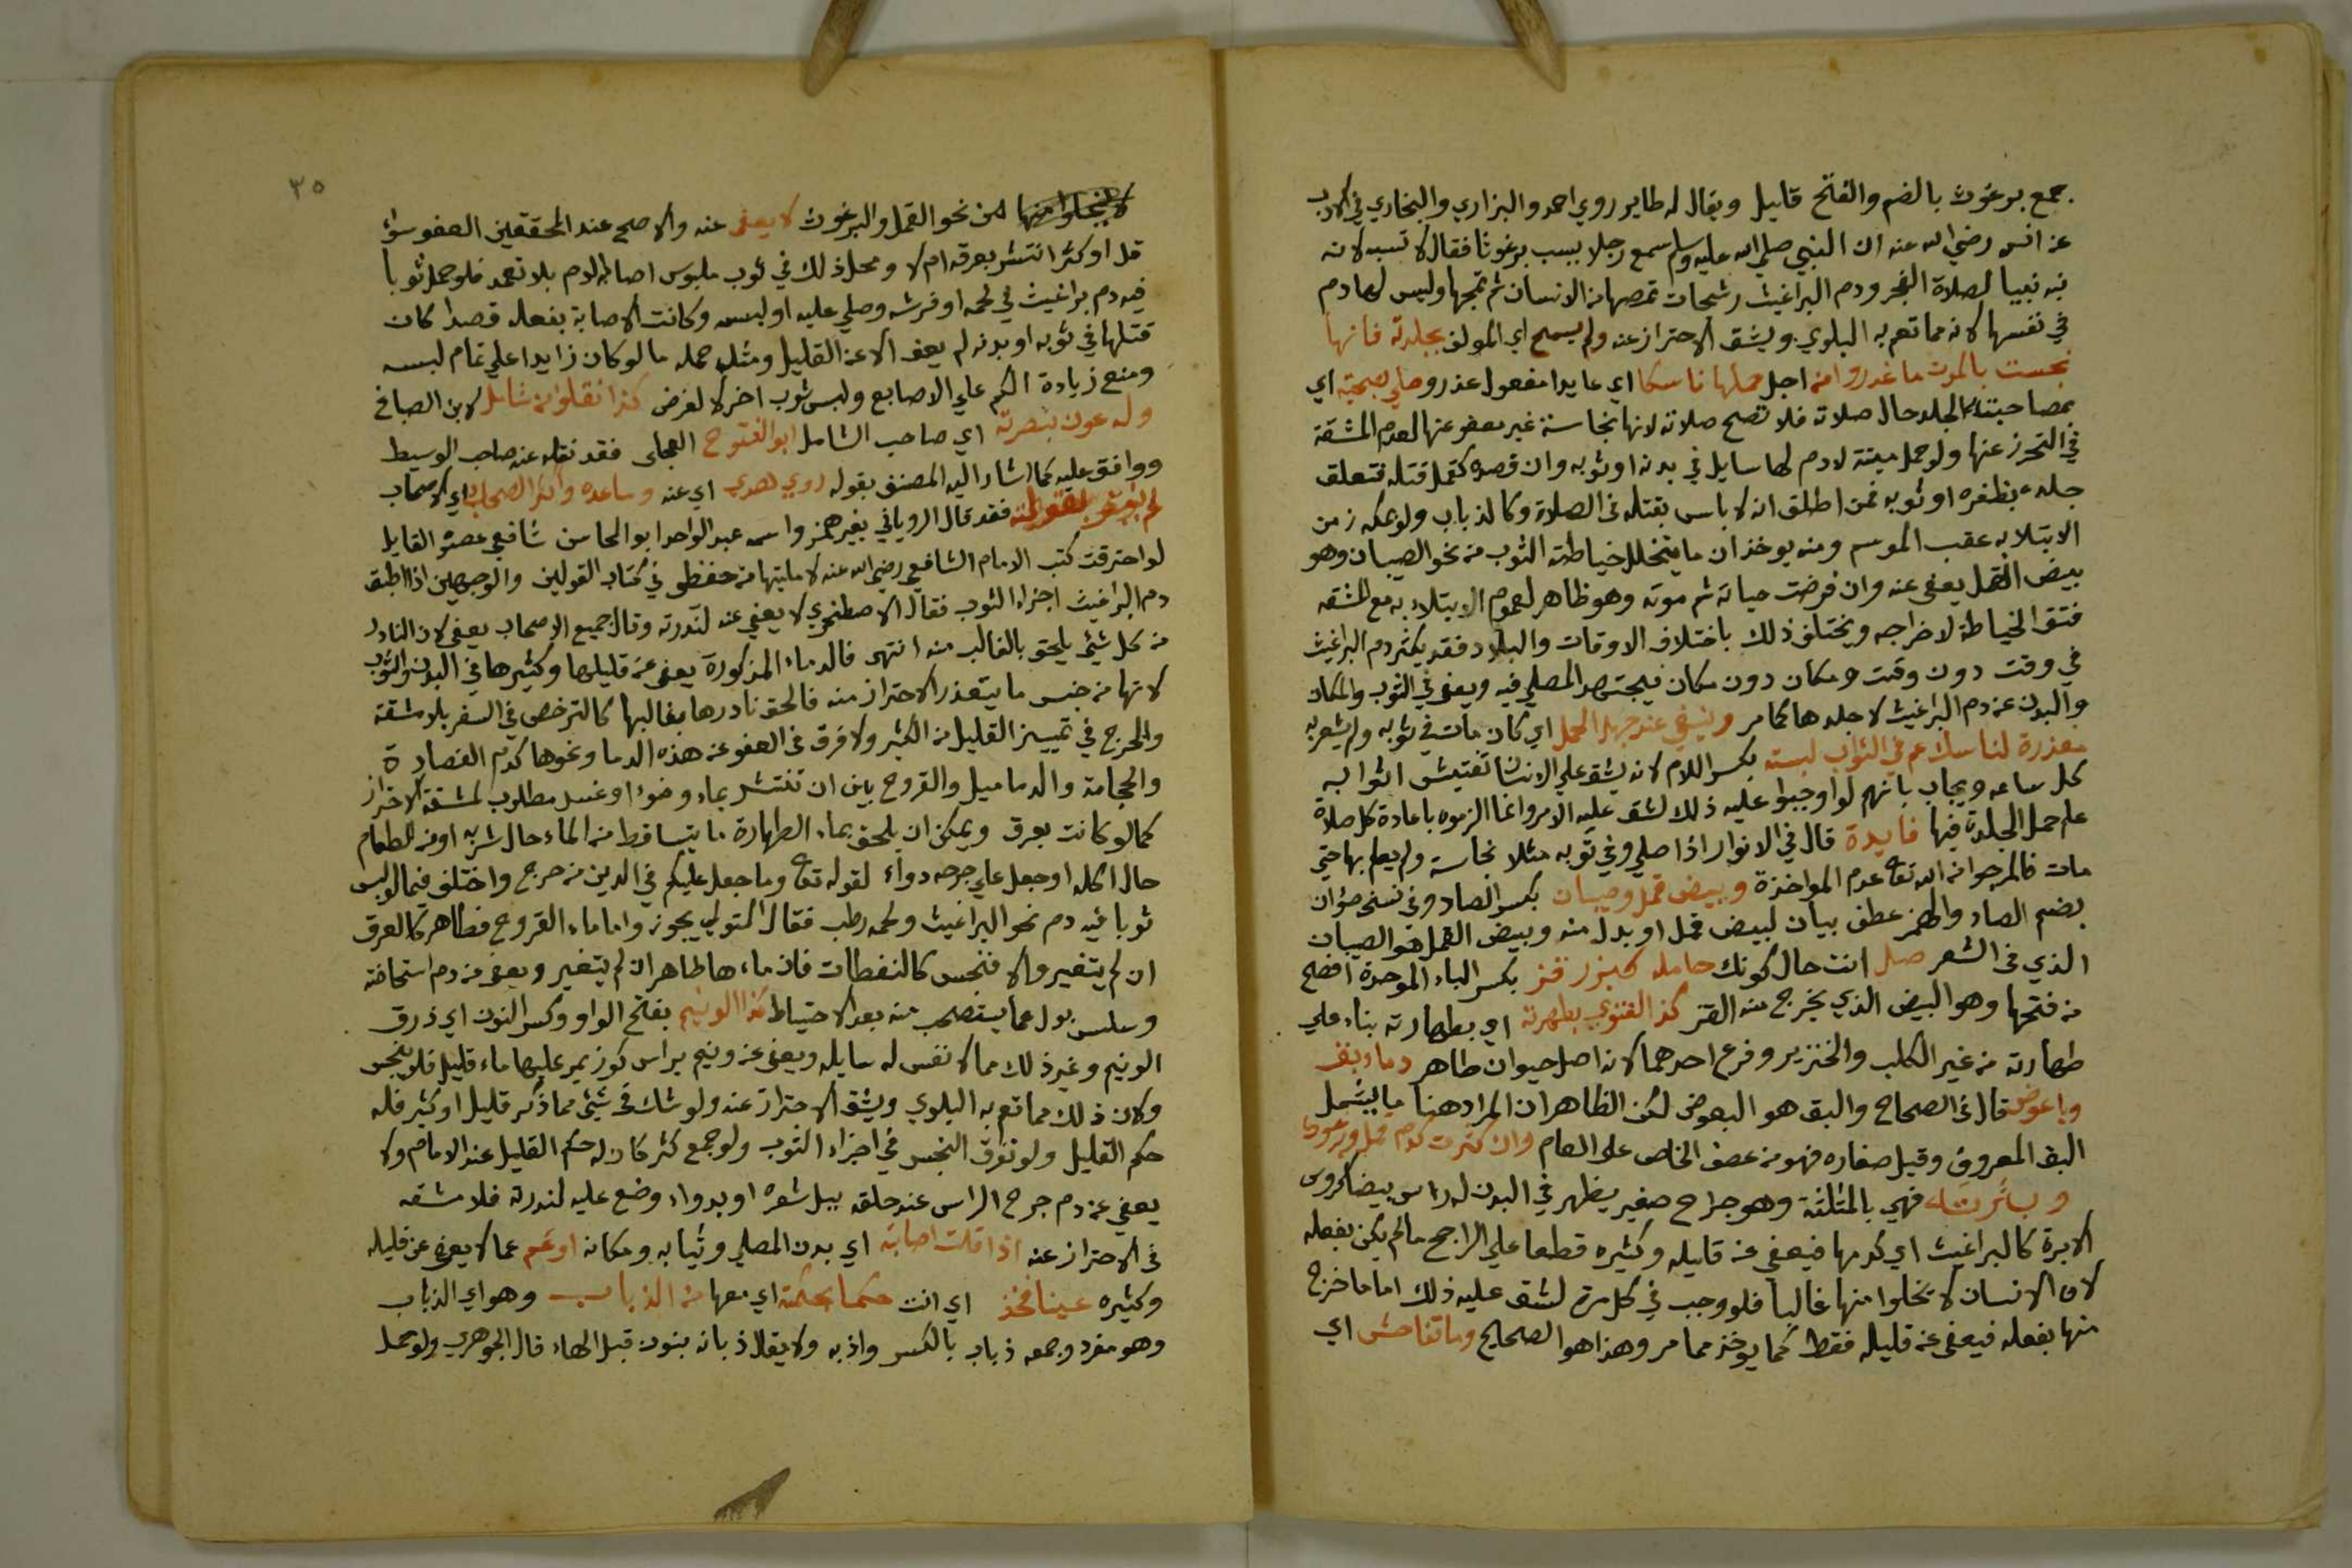 جمع برغوث بالضم والفتح قليل ويقال له طاير روي احمد والبزاري والبخاري في الادب
عن انس رضي الله عنه ان النبي صلي الله عليه وسلم سمع رجلا يسب برغوثا فقال لا تسبه لانه
نبه نبيا لصلاة الفجر ودم البراغيث رشحات تمصها من الانسان ثم تمجها وليس لها دم
في نفسها لانه مما تعم به البلوي ويشق الاحتراز عنه ولم يسمح اي المولف بجلدته فانها
نجست بالموت ما عذروا من اجل حملها ناسكا اي عابدا مفعول عذروا صلي بصحبته اي
بمصاحبته الجلد حال صلاته فلا تصح صلاته لانها نجاسة غير معفو عنها لعدم المشقة
في التحرز عنها ولو حمل ميتة لا دم لها سايل في بدنه او ثوبه وان قصده كقمل قتله فتعلق
جلده بظفره او ثوبه فمن اطلق انه لا باس بقتله في الصلاة وكالذباب ولو بمكة زمن
الابتلا به عقب الموسم ومنه يوخذ ان ما يتخلل خياطة الثوب من نحو الصيبان وهو
بيض القمل يعفي عنه وان فرضت حياته ثم موته وهو ظاهر لعموم الابتلاء به مع المشقه
فتق الخياطة لاخراجه ويختلف ذلك باختلاف الاوقات والبلاد فقد يكثر دم البراغيث
في وقت دون وقت ومكان دون مكان فيجتهد المصلي فيه ويعفي في الثوب والمكان
والبدن عن دم البراغيث لا جلدها كما مر وينبغي عند جهل الحمل اي كان مات في ثوبه ولم يشعر به
معذرة لناسك عم في اثواب لبسته بكسر اللام لانه يشق علي الانسان تفتيش اثوابه
كل ساعه ويجاب بانهم لو اوجبوا عليه ذلك لشق عليه الامر وانما الزموه باعادة كل صلاة
علم حمل الجلدة فيها فايدة قال في الانوار اذا صلي وفي ثوبه مثلا نجاسة ولم يعلم بها حتي
مات فالمرجو من الله تعا عدم المواخذة وبيض قمل وصيبان بكسر الصاد وفي نسخ صؤان
بضم الصاد والهمز عطف بيان لبيض قمل او بدل منه وبيض القمل هو الصيبان
الذي في الشعر صل انت حال كونك حامله كبزر قز بكسر الباء الموحدة افصح
من فتحها وهو البيض الذي يخرج منه القز كذا الفتوي بطهرته اي بطهارته بناء علي
طهارته من غير الكلب والخنزير وفرع احدهما لانه اصل حيوان طاهر دماء بق
وباعوض قال في الصحاح والبق هو البعوض لكن الظاهر ان المراد هنا ما يشمل
البق المعروف وقيل صغاره فهو من عطف الخاص علي العام وان كثرت كدم قمل وبرغوث
وبثرته فهي بالمثلثة وهو جراح صغير يظهر في البدن له راس بيضا كروس
الابرة كالبراغيث اي كدمها فيعفي عن قليله وكثيره قطعا علي الراجح مالم يكن بفعله
لان الانسان لا يخلوا منها غالبا فلو وجب في كل مرة لشق عليه ذلك اما ما خرج
منها بفعله فيعفي عن قليله فقط كما يوخذ مما مر وهذا هو الصحايح وما تفاحش اي
٣٥
لا يخلوا منها من نحو القمل والبرغوث لا يعفي عنه والاصح عند المحققين العفو سواء
قل او كثر انتشر بعرقه ام لا ومحل ذلك في ثوب ملبوس اصابه الدم بلا تعمد فلو حمل ثوبا
فيه دم براغيث في لحمه او فرشه وصلي عليه او لبسه وكانت الاصابة بفعله قصدا كان
قتلها في ثوبه او بدنه لم يعف الا عن القليل ومثل حمله ما لو كان زايدا علي تمام لبسه
ومنع زيادة الكم علي الاصابع ولبس ثوب اخر لا لغرض كذا نقلوا من شامل لابن الصباغ
وله عون بنصرته اي صاحب الشامل ابو الفتوح العجلي فقد نقله عنه صاحب الوسيط
ووافق عليه كما اشار اليه المصنف بقوله روي هدي اي عنه وساعده واكثر الصحاب اي الاصحاب
فقد قال الروياني بغير همز واسمه عبد الواحد ابو المحاسن شافعي عصره القايل
لو احترقت كتب الامام الشافعي رضي الله عنه لامليتها من حفظي في كتاب القولين والوجهين اذا طبق
دم البراغيث اجزاء الثوب فقال الاصطخري لا يعفي عنه لندرته وقال جميع الاصحاب يعفي لان النادر
من كل شيء يلحق بالغالب منه انتهى فالدماء المذكورة يعفي عن قليلها وكثيرها في البدن والثوب
لانها من جنس ما يتعذر الاحتراز منه فالحق نادرها بغالبها كالترخص في السفر بلا مشقة
والحرج في تمييز القليل من الكثير ولا فرق في العفو عن هذه الدما ونحوها كدم الفصادة
والحجامة والدماميل والقروح بين ان تنتشر بماء وضوء او غسل مطلوب لمشقة الاحتراز
كما لو كانت بعرق ويمكن ان يلحق بماء الطهارة ما يتساقط من الماء حال شربه او من الطعام
حال اكله او جعل علي جرحه دواء لقوله تعا وما جعل عليكم في الدين من حرج واختلف فيما لو لبس
ثوبا فيه دم نحو البراغيث ولحمه رطب فقال المتولي يجوز واما ماء القروح فطاهر كالعرق
ان لم يتغير والا فنجس كالنفطات فان ماءها طاهر ان لم يتغير ويعفي عن دم استحاضة
وسلس بول عما يستصحب منه بعد الاحتياط كذا الونيم بفتح الواو وكسر النون اي ذرق
الونيم وغير ذلك مما لا نفس له سايله ويعفي عن ونيم براس كوز يمر عليها ماء قليل فلا ينجس
ولان ذلك مما تعم به البلوي ويشق الاحتراز عنه ولو شك في شيء مما ذكر قليل او كثير فله
حكم القليل ولو تفرق النجس في اجزاء الثوب ولو جمع كثر كان له حكم القليل عند الامام ولا
يعفي عن دم جرح الراس عند حلقه ببل شعره او بدواء وضع عليه لندرته فلا مشقه
في الاحتراز عنه اذا قلت اصابته اي بدن المصلي وثيابه ومكانه او عم عما لا يعفي عن قليله
وكثيره عينا فخذ اي انت حكما بحكمته اي معها من الذباب وهو اي الذباب
وهو مفرد وجمعه ذباب بالكسر واذبه ولا يقال ذبانه بنون قبل الهاء قال الجوهري ولو حمل